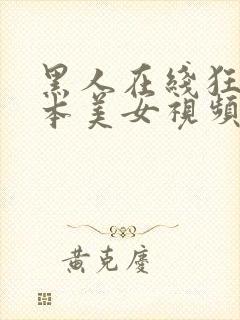 黑人在綫狂
本美女視頻
黃克慶